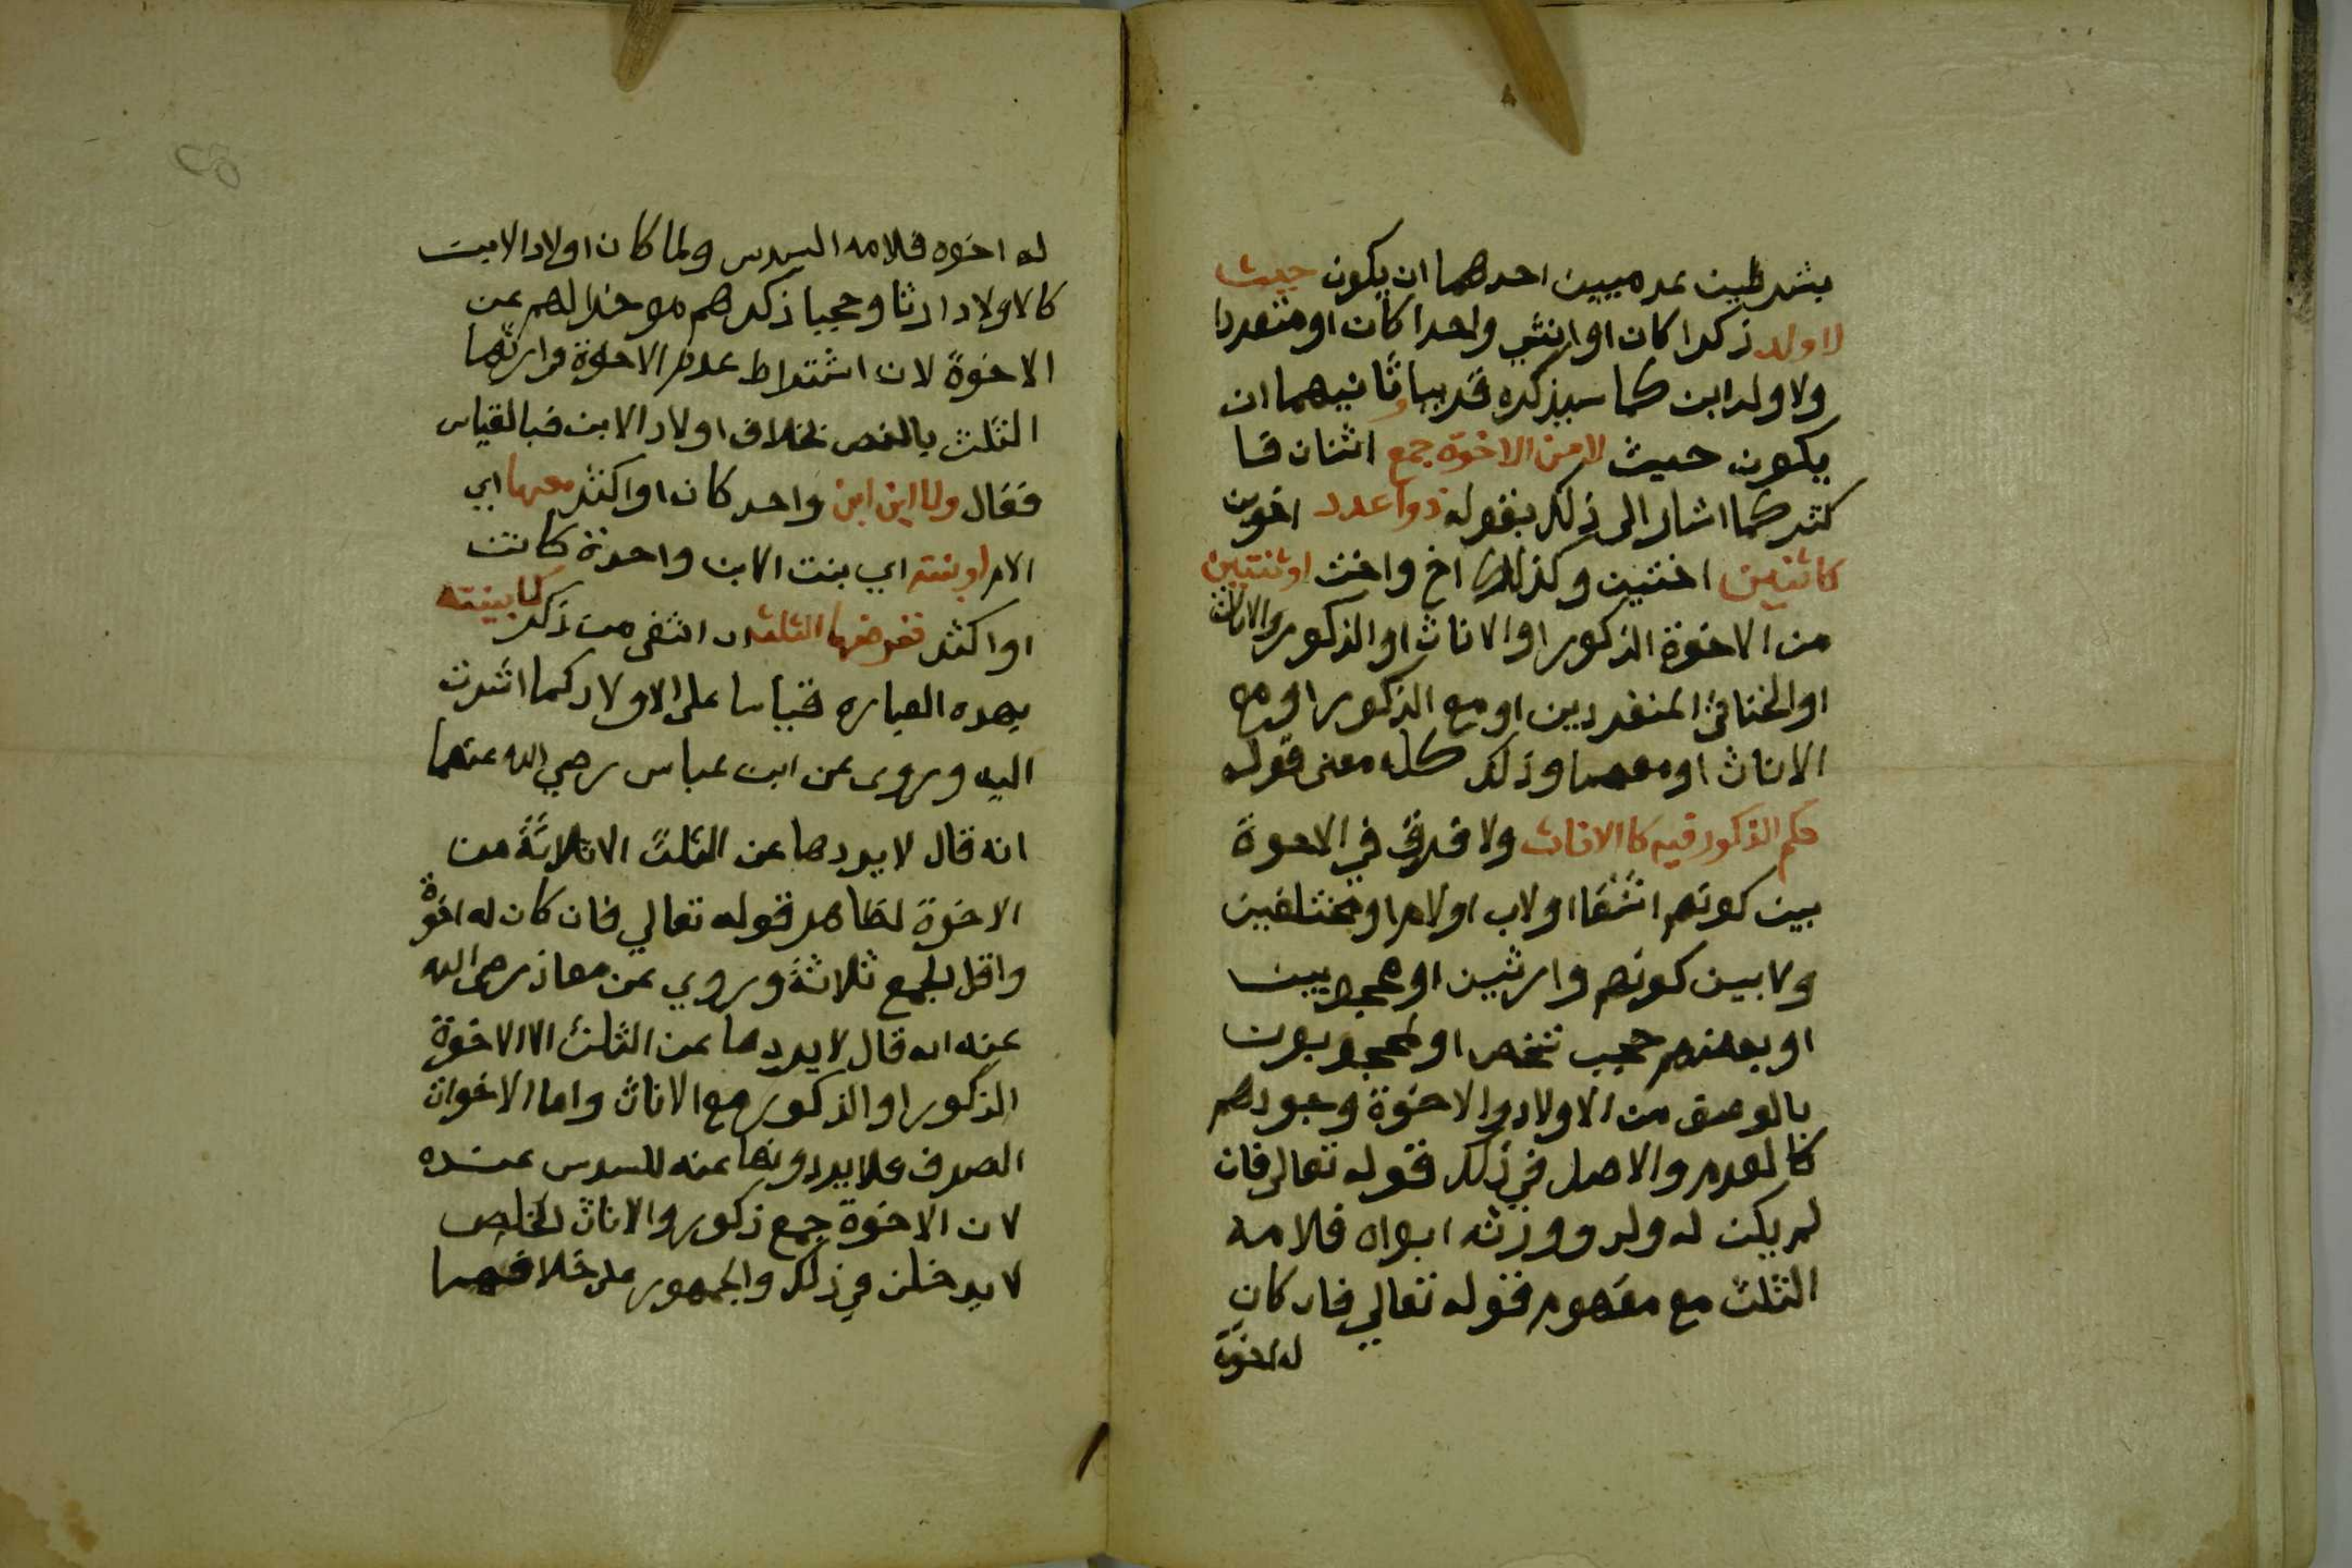 بشرطين عدميين احدهما ان يكون حيث
لا ولد ذكرا كان او انثي واحدا كان او متعددا
ولا ولد ابن كما سيذكره قريبا و ثانيهما ان
يكون حيث لا من الاخوة جمع اثنان فا
كثر كما اشار الى ذلك بقوله ذوا عدد اخوين
كاثنين اختين وكذلك اخ واخت او ثنتين
من الاخوة الذكور او الاناث او الذكور والاناث
او الخناثى المنفردين او مع الذكور او مع
الاناث او معهما وذلك كله معنى قوله
حكم الذكور فيه كا الاناث ولا فرق في الاخوة
بين كونهم اشقا او لاب او لام او مختلفين
ولا بين كونهم وارثين او محجوبين
او بعضهم حجب شخص او المحجوبون
بالوصف من الاولاد والاخوة وجودهم
كالعدم والاصل في ذلك قوله تعالى فان
لم يكن له ولد وورثه ابواه فلامه
الثلث مع مفهوم قوله تعالي فان كان
له اخوة
له اخوه فلامه السدس ولما كان اولاد الابن
كالاولاد ارثا وحجبا ذكرهم موخرا لهم عن
الاخوة لان اشتراط عدم الاخوة في ارثها
الثلث بالنص بخلاف اولاد الابن فبالقياس
فقال ولا ابن ابن واحد كان او اكثر معها اي
الام او بنته اي بنت الابن واحدة كانت
او اكثر ففرضها الثلث ان انتفى من ذكر كما بينته
بهده العباره قياسا على الاولاد كما اشرت
اليه وروى عن ابن عباس رضي الله عنهما
انه قال لا يردها عن الثلث الا ثلاثة من
الاخوة لظاهر قوله تعالي فان كان له اخوة
واقل الجمع ثلاثة وروي عن معاذ رضى الله
عنه انه قال لا يردها عن الثلث الا الاخوة
الذكور او الذكور مع الاناث واما الاخوات
الصرف فلا يردونها عنه للسدس عنده
لان الاخوة جمع ذكور والاناث الخلص
لا يدخلن في ذلك والجمهور على خلافهما